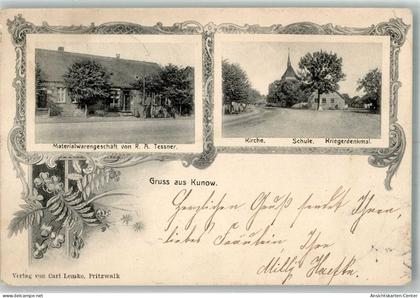 Materialwarengeschäft von R. A. Tessner.
Kirche. Schule. Kriegerdenkmal.
Gruss aus Kunow.
Herzlichen Gruß sendet Ihnen,
liebes Fräulein, Ihre
Milly
Verlag von Carl Lemke, Pritzwalk
www.ansichtskarten-center.de
Ansichtskarten-Center